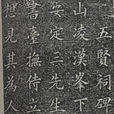 五賢祠碑
山凌漢峯下
安定三先生
書臺撫侍立
想見其為人